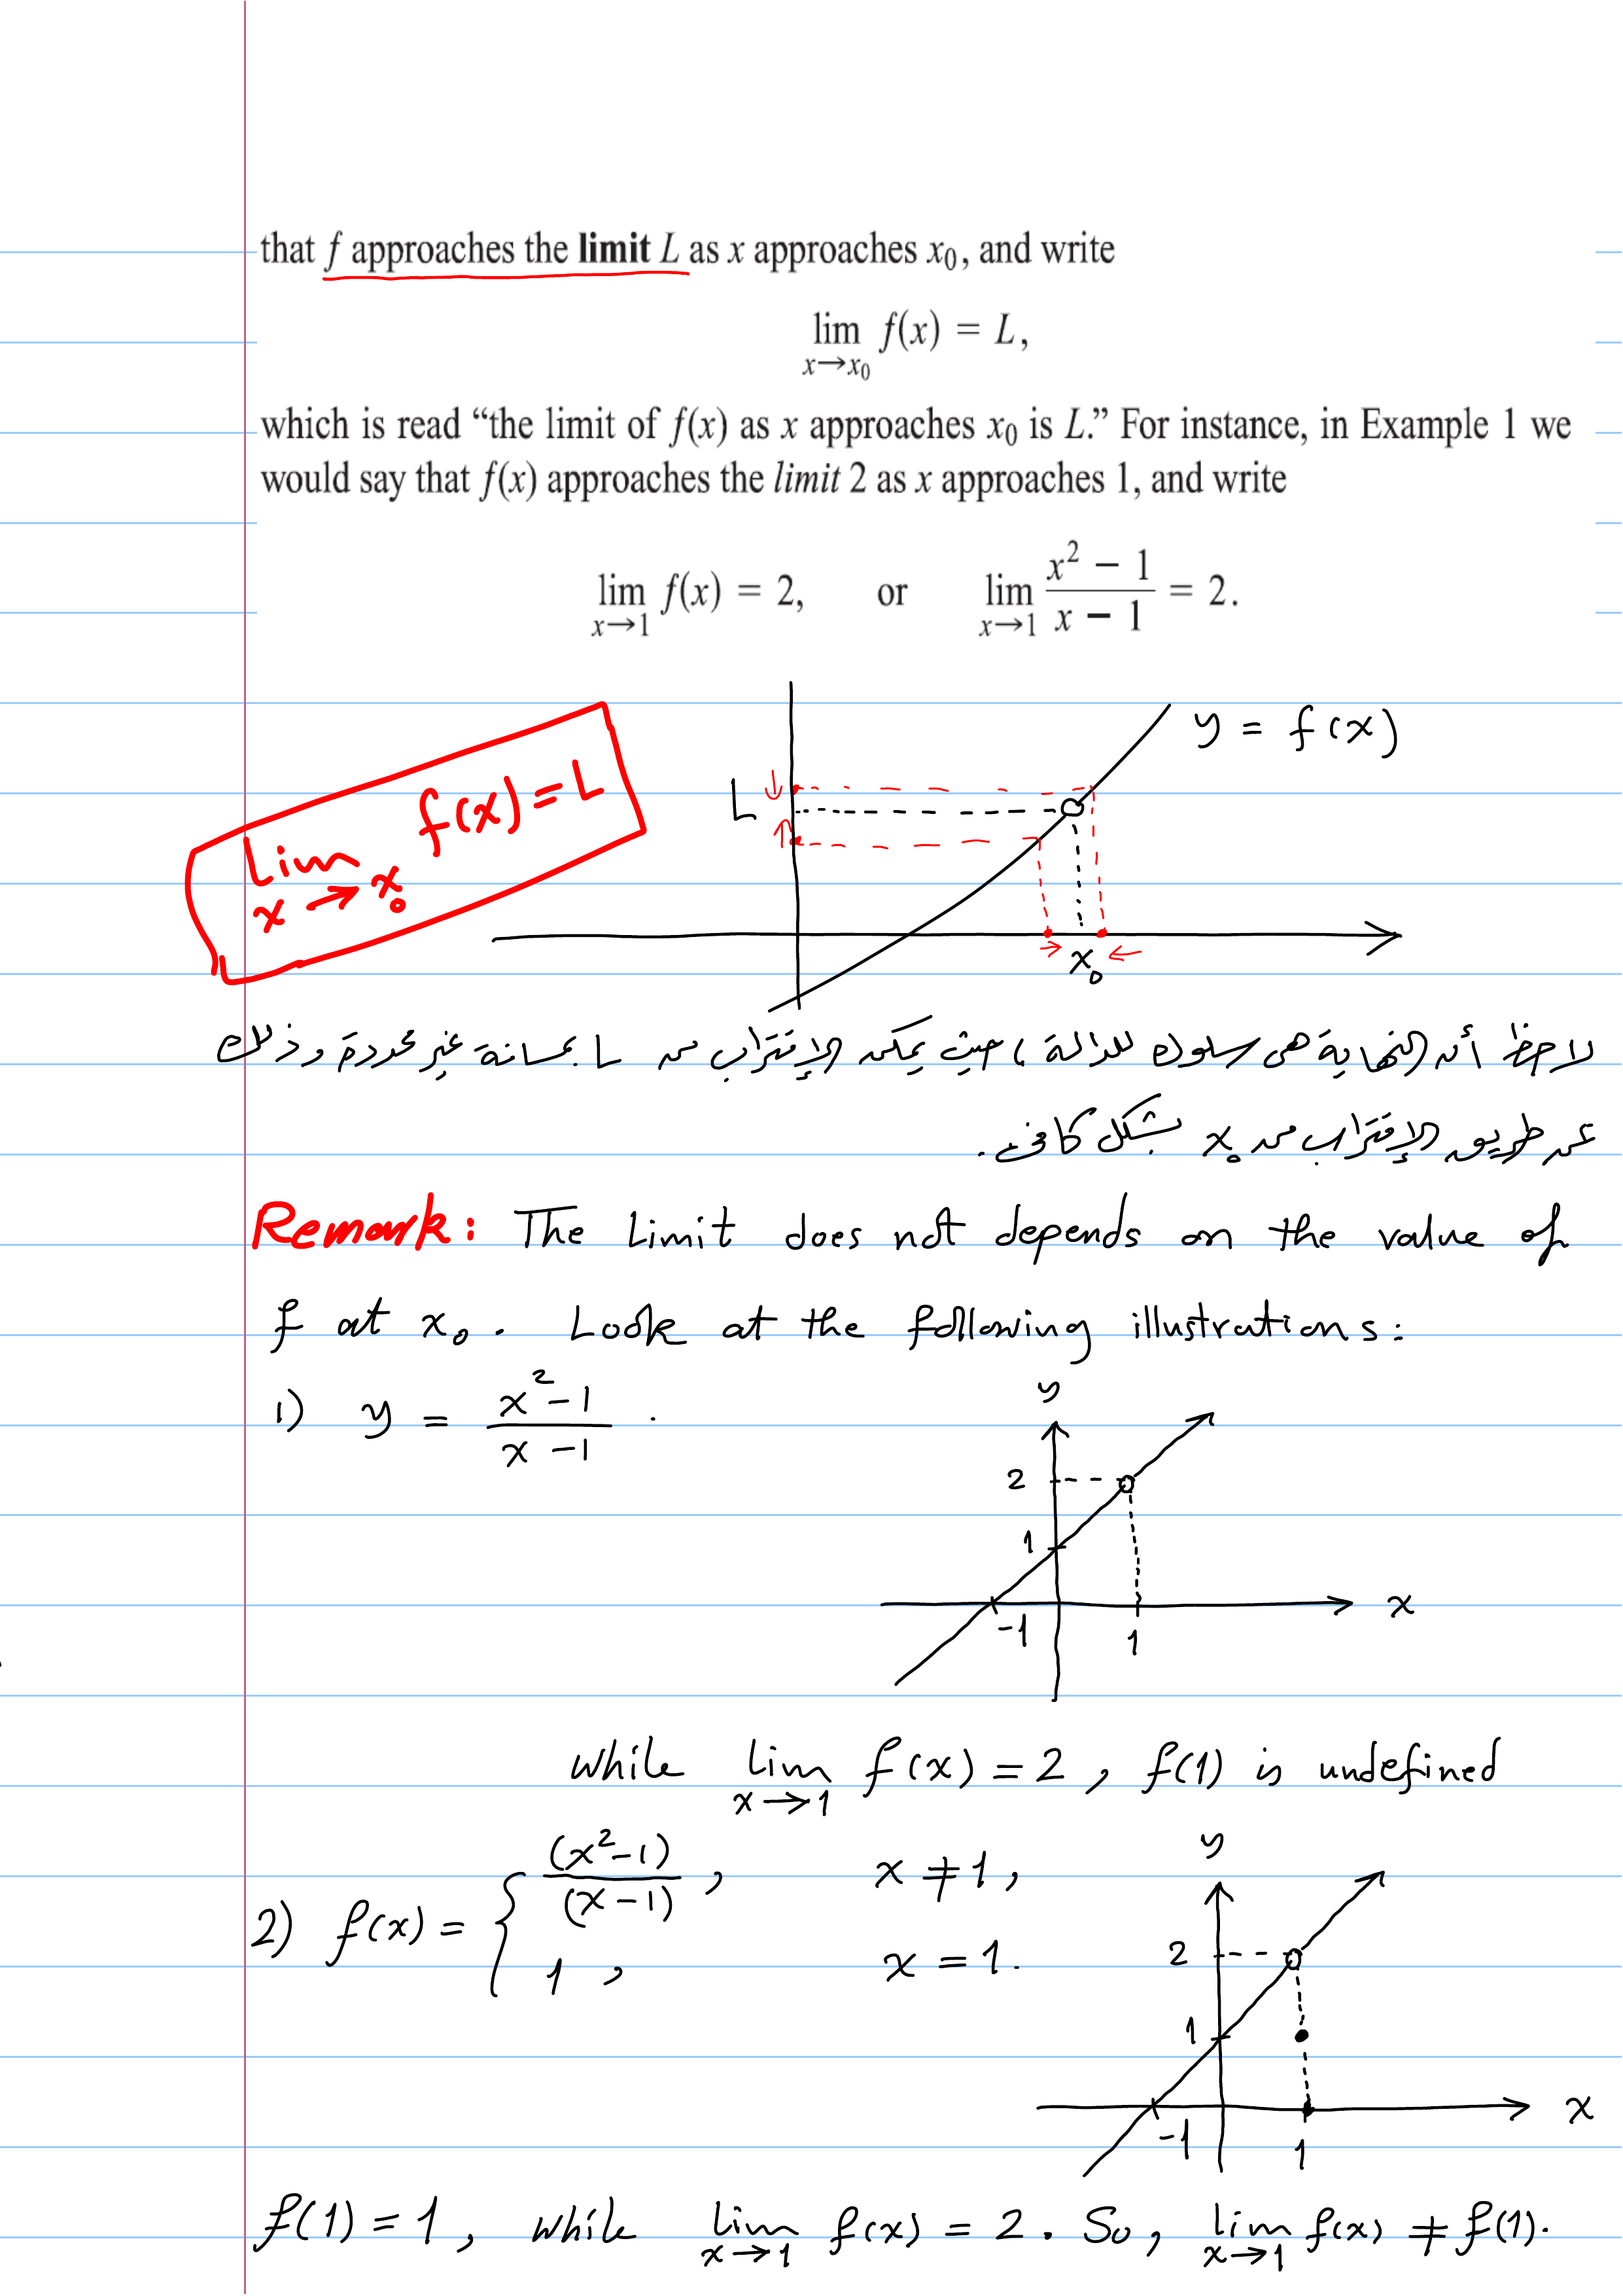 that f approaches the limit L as x approaches x₀, and write
lim f(x) = L,
x→x₀
which is read “the limit of f(x) as x approaches x₀ is L.” For instance, in Example 1 we
would say that f(x) approaches the limit 2 as x approaches 1, and write
lim f(x) = 2, or lim (x² − 1)/(x − 1) = 2.
x→1 x→1
y = f(x)
L
Lim f(x) = L
x → x₀
x₀
لاحظ أن النهاية هى سلوك للدالة، حيث يمكن الإقتراب من L بمسافة غير محددة وذلك
عن طريق الإقتراب من x₀ بشكل كافى.
Remark: The Limit does not depends on the value of
f at x₀. Look at the following illustrations:
1) y = (x²-1)/(x-1).
y
2
1
x
-1 1
while lim f(x) = 2, f(1) is undefined
x→1
2) f(x) = { (x²-1)/(x-1), x ≠ 1,
1, x = 1.
y
2
1
x
-1 1
f(1) = 1, while lim f(x) = 2. So, lim f(x) ≠ f(1).
x→1 x→1